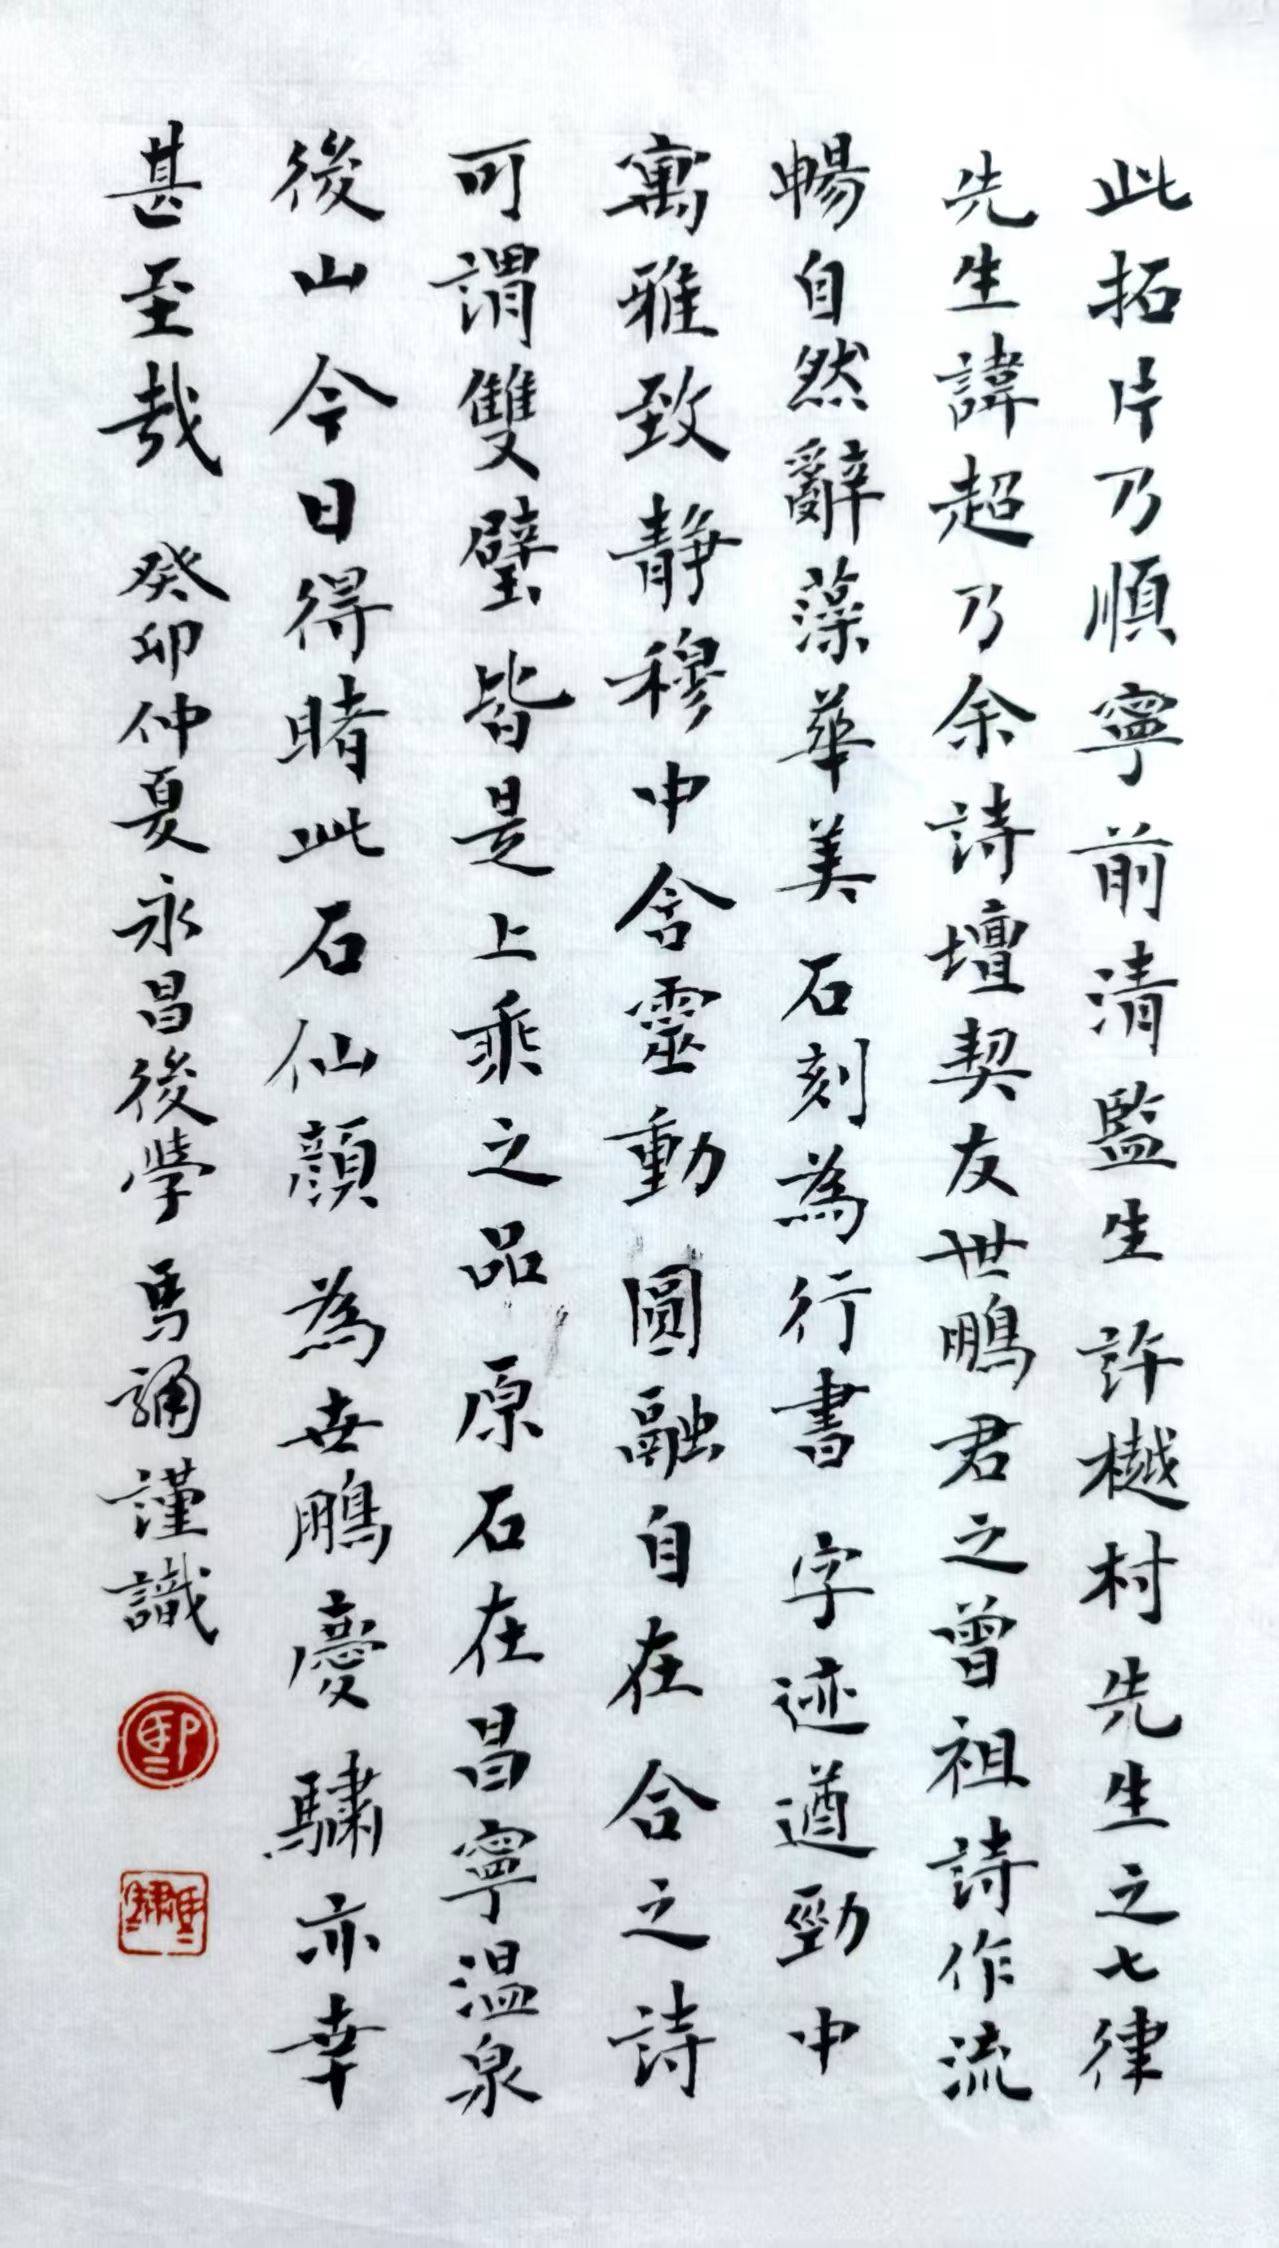 此拓片乃順寧前清監生許樾村先生之七律
先生諱超乃余詩壇契友世鵬君之曾祖詩作流
暢自然辭藻華美石刻為行書字迹遒勁中
寓雅致靜穆中含靈動圓融自在合之詩
可謂雙璧皆是上乘之品原石在昌寧温泉
後山今日得睹此石仙顔為世鵬慶驌亦幸
甚至哉癸卯仲夏永昌後學馬誦謹識